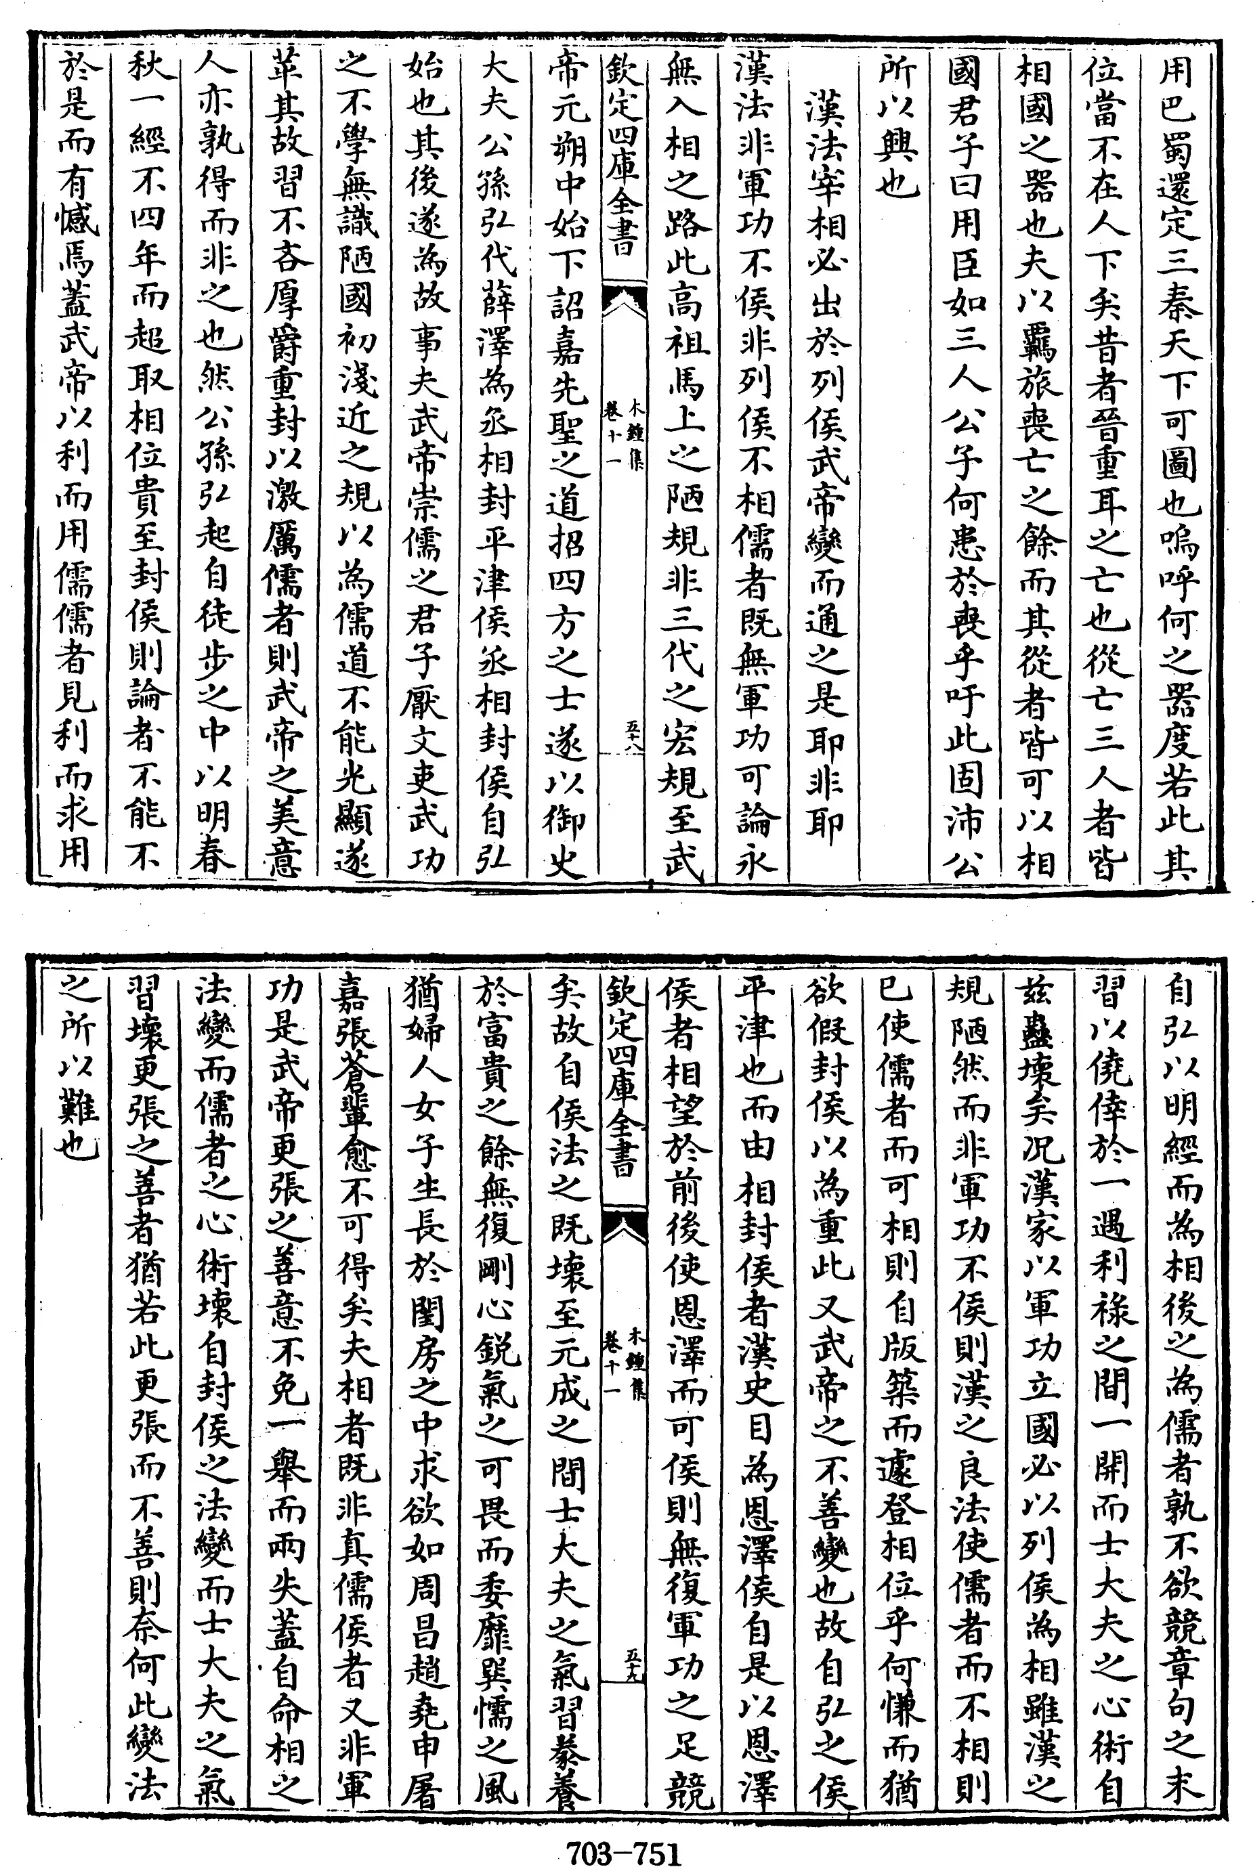 用巴蜀還定三秦天下可圖也嗚呼何之器度若此其
位當不在人下矣昔者晉重耳之亡也從亡三人者皆
相國之器也夫以羈旅喪亡之餘而其從者皆可以相
國君子曰用臣如三人公子何患於喪乎吁此固沛公
所以興也
漢法宰相必出於列侯武帝變而通之是耶非耶
漢法非軍功不侯非列侯不相儒者既無軍功可論永
無入相之路此高祖馬上之陋規非三代之宏規至武
欽定四庫全書
木鐘集
卷十一
五十八
帝元朔中始下詔嘉先聖之道招四方之士遂以御史
大夫公孫弘代薛澤為丞相封平津侯丞相封侯自弘
始也其後遂為故事夫武帝崇儒之君子厭文吏武功
之不學無識陋國初淺近之規以為儒道不能光顯遂
革其故習不吝厚爵重封以激厲儒者則武帝之美意
人亦孰得而非之也然公孫弘起自徒步之中以明春
秋一經不四年而超取相位貴至封侯則論者不能不
於是而有憾焉蓋武帝以利而用儒儒者見利而求用
自弘以明經而為相後之為儒者孰不欲競章句之末
習以僥倖於一遇利祿之間一開而士大夫之心術自
茲蠱壞矣况漢家以軍功立國必以列侯為相雖漢之
規陋然而非軍功不侯則漢之良法使儒者而不相則
已使儒者而可相則自版築而遽登相位乎何慊而猶
欲假封侯以為重此又武帝之不善變也故自弘之侯
平津也而由相封侯者漢史目為恩澤侯自是以恩澤
侯者相望於前後使恩澤而可侯則無復軍功之足競
欽定四庫全書
木鐘集
卷十一
五十九
矣故自侯法之既壞至元成之間士大夫之氣習豢養
於富貴之餘無復剛心銳氣之可畏而委靡巽懦之風
猶婦人女子生長於閨房之中求欲如周昌趙堯申屠
嘉張蒼輩愈不可得矣夫相者既非真儒侯者又非軍
功是武帝更張之善意不免一舉而兩失蓋自命相之
法變而儒者之心術壞自封侯之法變而士大夫之氣
習壞更張之善者猶若此更張而不善則奈何此變法
之所以難也
703-751